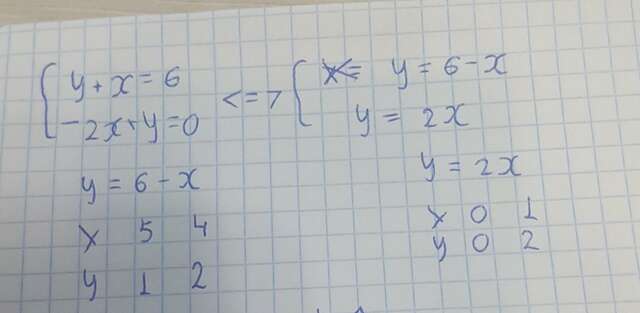 y + x = 6
-2x + y = 0
<=>
y = 6 - x
y = 2x
y = 6 - x
x 5 4
y 1 2
y = 2x
x 0 1
y 0 2